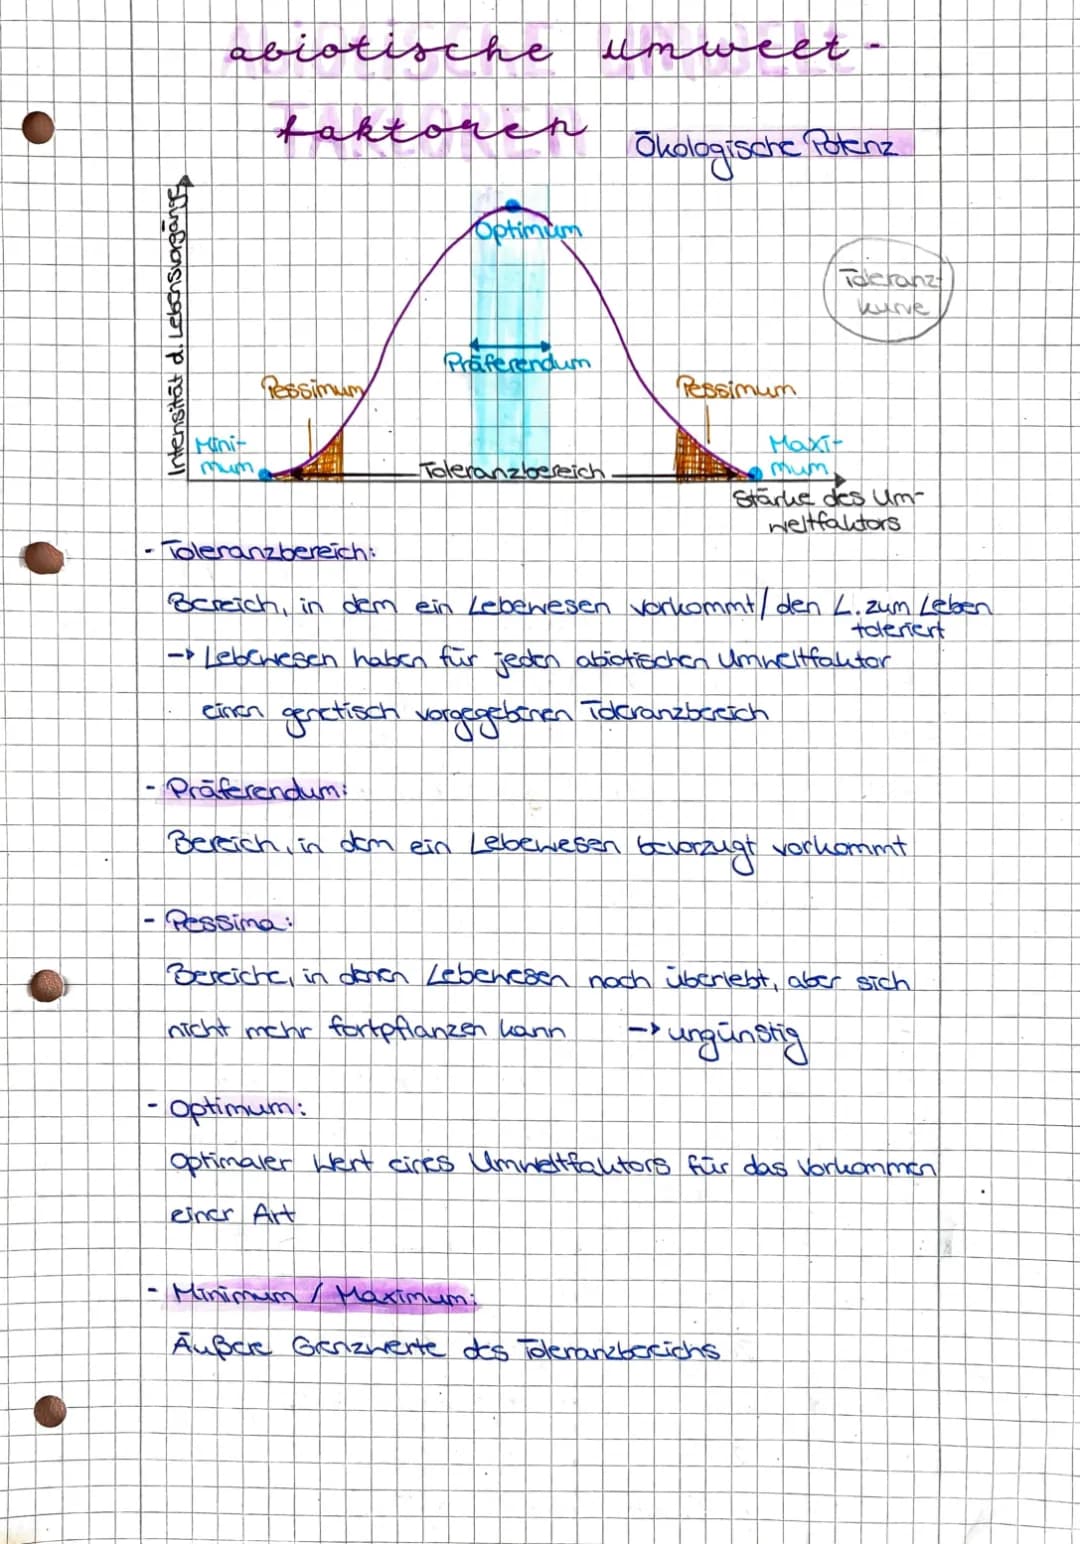 abiotische umwelt-
faktoren
Ökologische Potenz
Intensität d. Lebensvorgänge
Optimum
Toleranz-
kurve
Präferendum
Pessimum
Pessimum
Mini-
mum
Maxi-
mum
Toleranzbereich
Stärke des Um-
weltfaktors
- Toleranzbereich:
Bereich, in dem ein Lebewesen vorkommt/ den L. zum Leben
toleriert
-> Lebewesen haben für jeden abiotischen Umweltfaktor
einen genetisch vorgegebenen Toleranzbereich
- Präferendum:
Bereich, in dem ein Lebewesen bevorzugt vorkommt
- Pessima:
Bereiche, in denen Lebewesen noch überlebt, aber sich
nicht mehr fortpflanzen kann -> ungünstig
- Optimum:
Optimaler Wert eines Umweltfaktors für das Vorkommen
einer Art
- Minimum / Maximum:
Äußere Grenzwerte des Toleranzbereichs